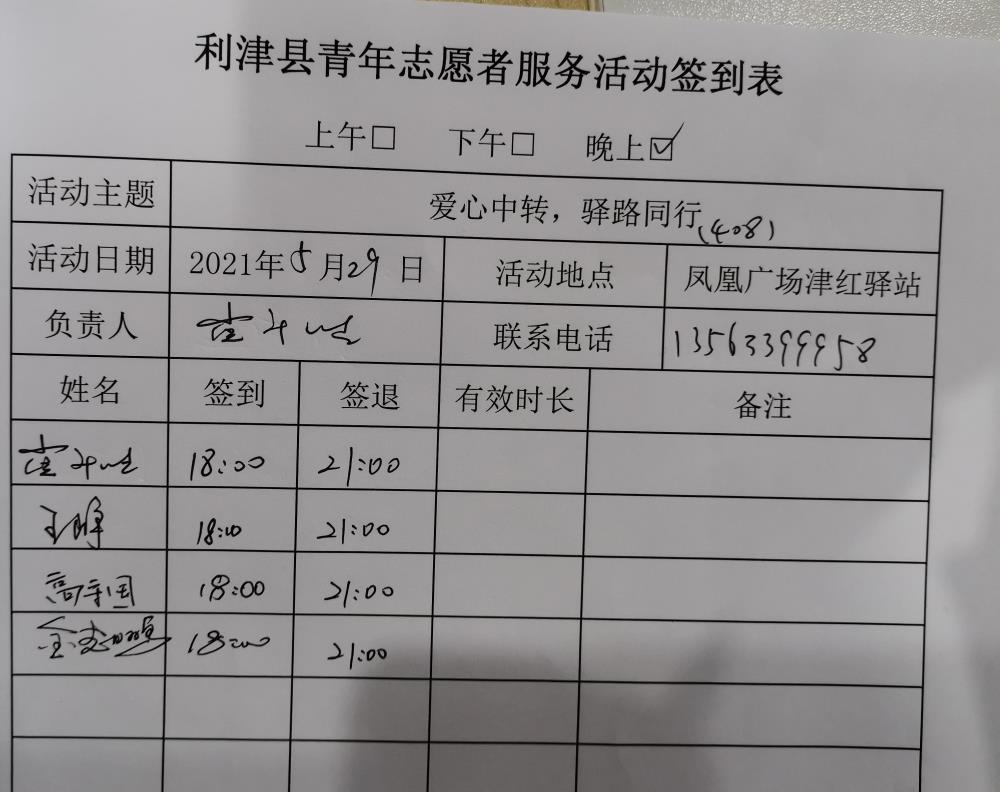 利津县青年志愿者服务活动签到表
上午□ 下午□ 晚上☑
活动主题 爱心中转，驿路同行(408)
活动日期 2021年5月29日 活动地点 凤凰广场津红驿站
负责人 联系电话 13563399958
姓名 签到 签退 有效时长 备注
18:00 21:00
王峰 18:00 21:00
高守国 18:00 21:00
18:00 21:00